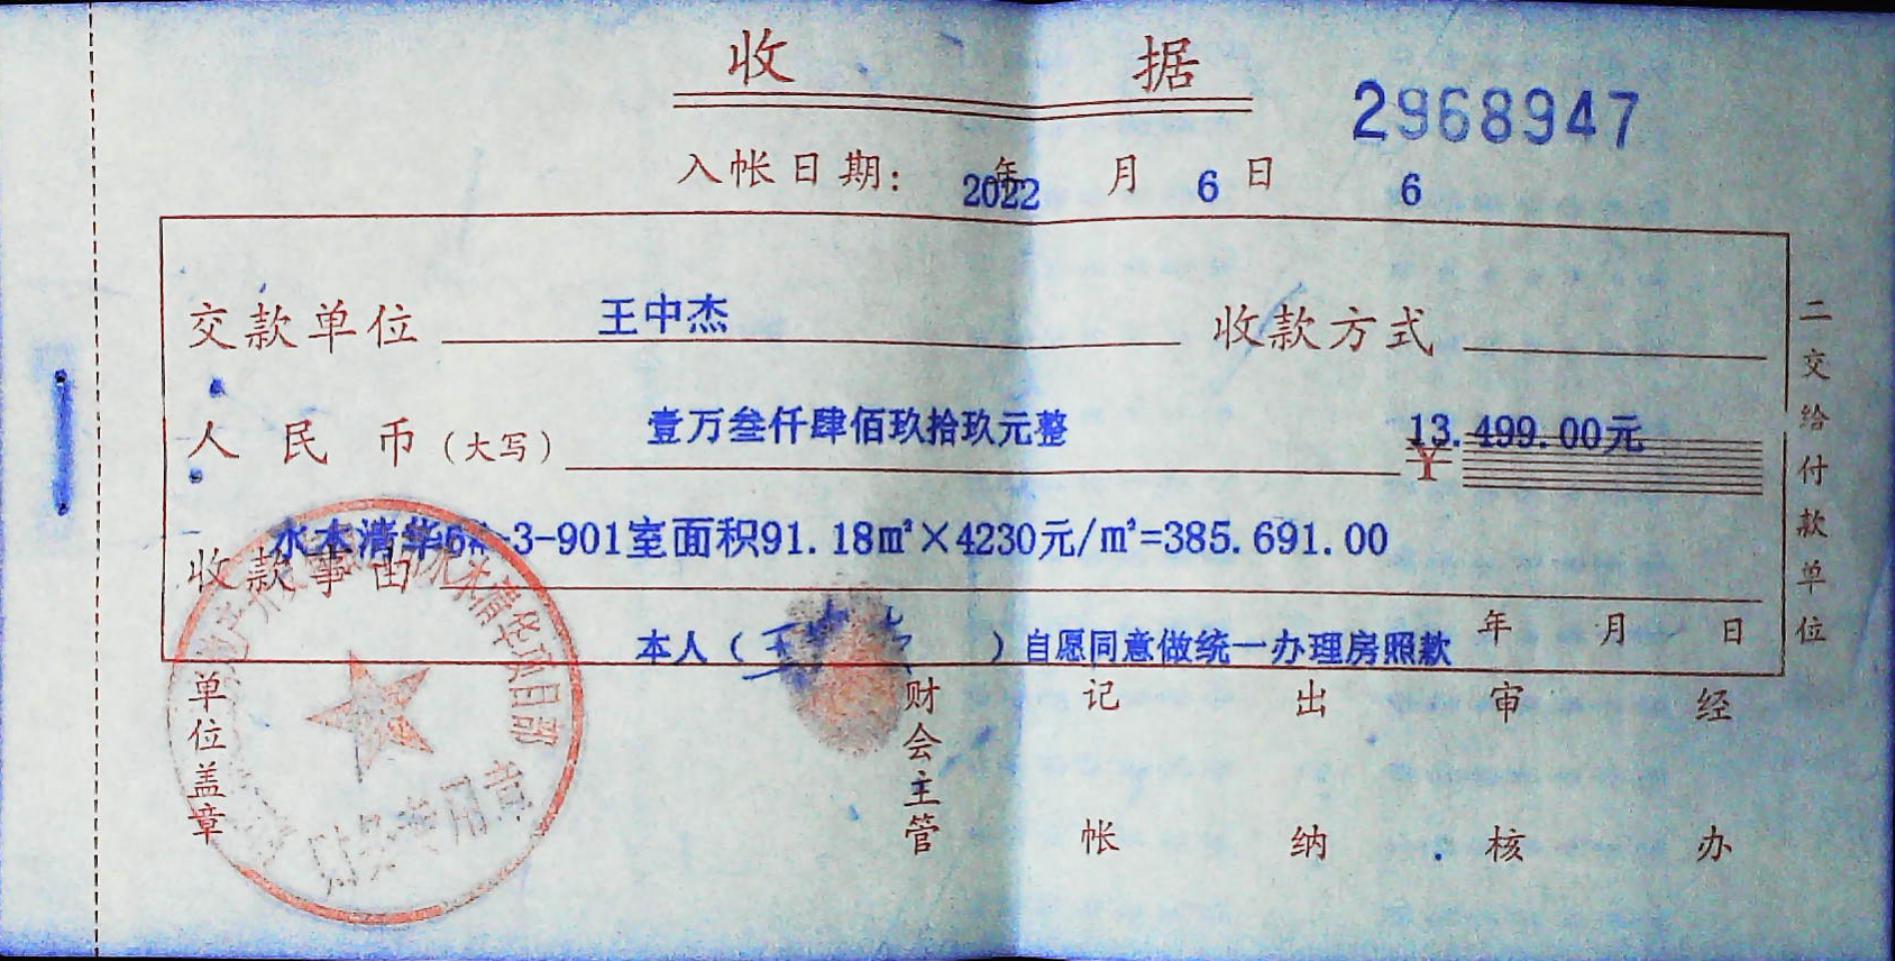 收 据
2968947
入帐日期: 2022 年 月 6 日 6
交款单位 王中杰 收款方式
人民币(大写) 壹万叁仟肆佰玖拾玖元整 ¥ 13.499.00元
收款事由 水木清华6#-3-901室面积91.18㎡×4230元/㎡=385.691.00
年 月 日
本人( )自愿同意做统一办理房照款
二交给付款单位
单位盖章
财会主管 记帐 出纳 审核 经办
水木清华项目部
财务专用章